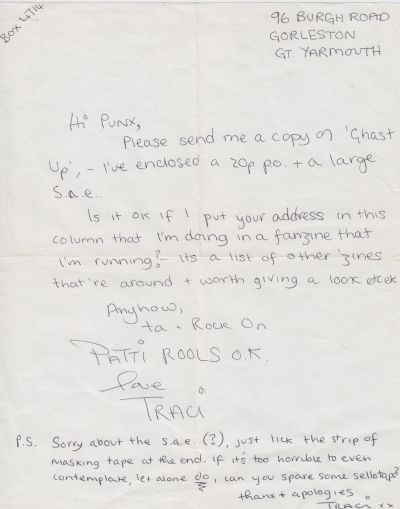 BOX 4714
96 BURGH ROAD
GORLESTON
GT. YARMOUTH
Hi PUNX,
Please send me a copy of 'Ghast
Up', - I've enclosed a 20p p.o. + a large
s.a.e..
Is it ok if I put your address in this
column that I'm doing in a fanzine that
I'm running? - its a list of other 'zines
that're around + worth giving a look etcek
Anyhow,
ta + Rock On
PATTI ROOLS O.K.
love
TRACi
P.S. Sorry about the s.a.e. (?), just lick the strip of
masking tape at the end. If it's too horrible to even
contemplate, let alone do, can you spare some sellotape?
thanx + apologies
TRACi xx